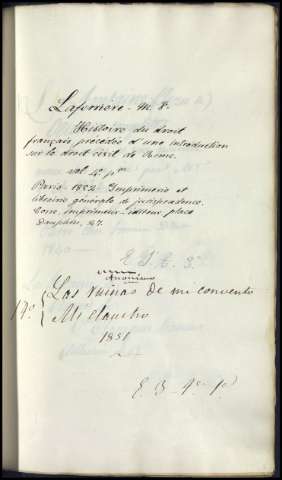 Laferriere. M. F.
Histoire du droit
français précédée d'une introduction
sur le droit civil de Rome.
vol 4º pta
Paris 1852. Imprimerie et
librairie générale de jurisprudence.
Cosse, imprimeur-editeur, place
Dauphine, 27.
E. 3ª
Anonimo
Las ruinas de mi convento
14º
Mi claustro
1851
E. 3 4º pª